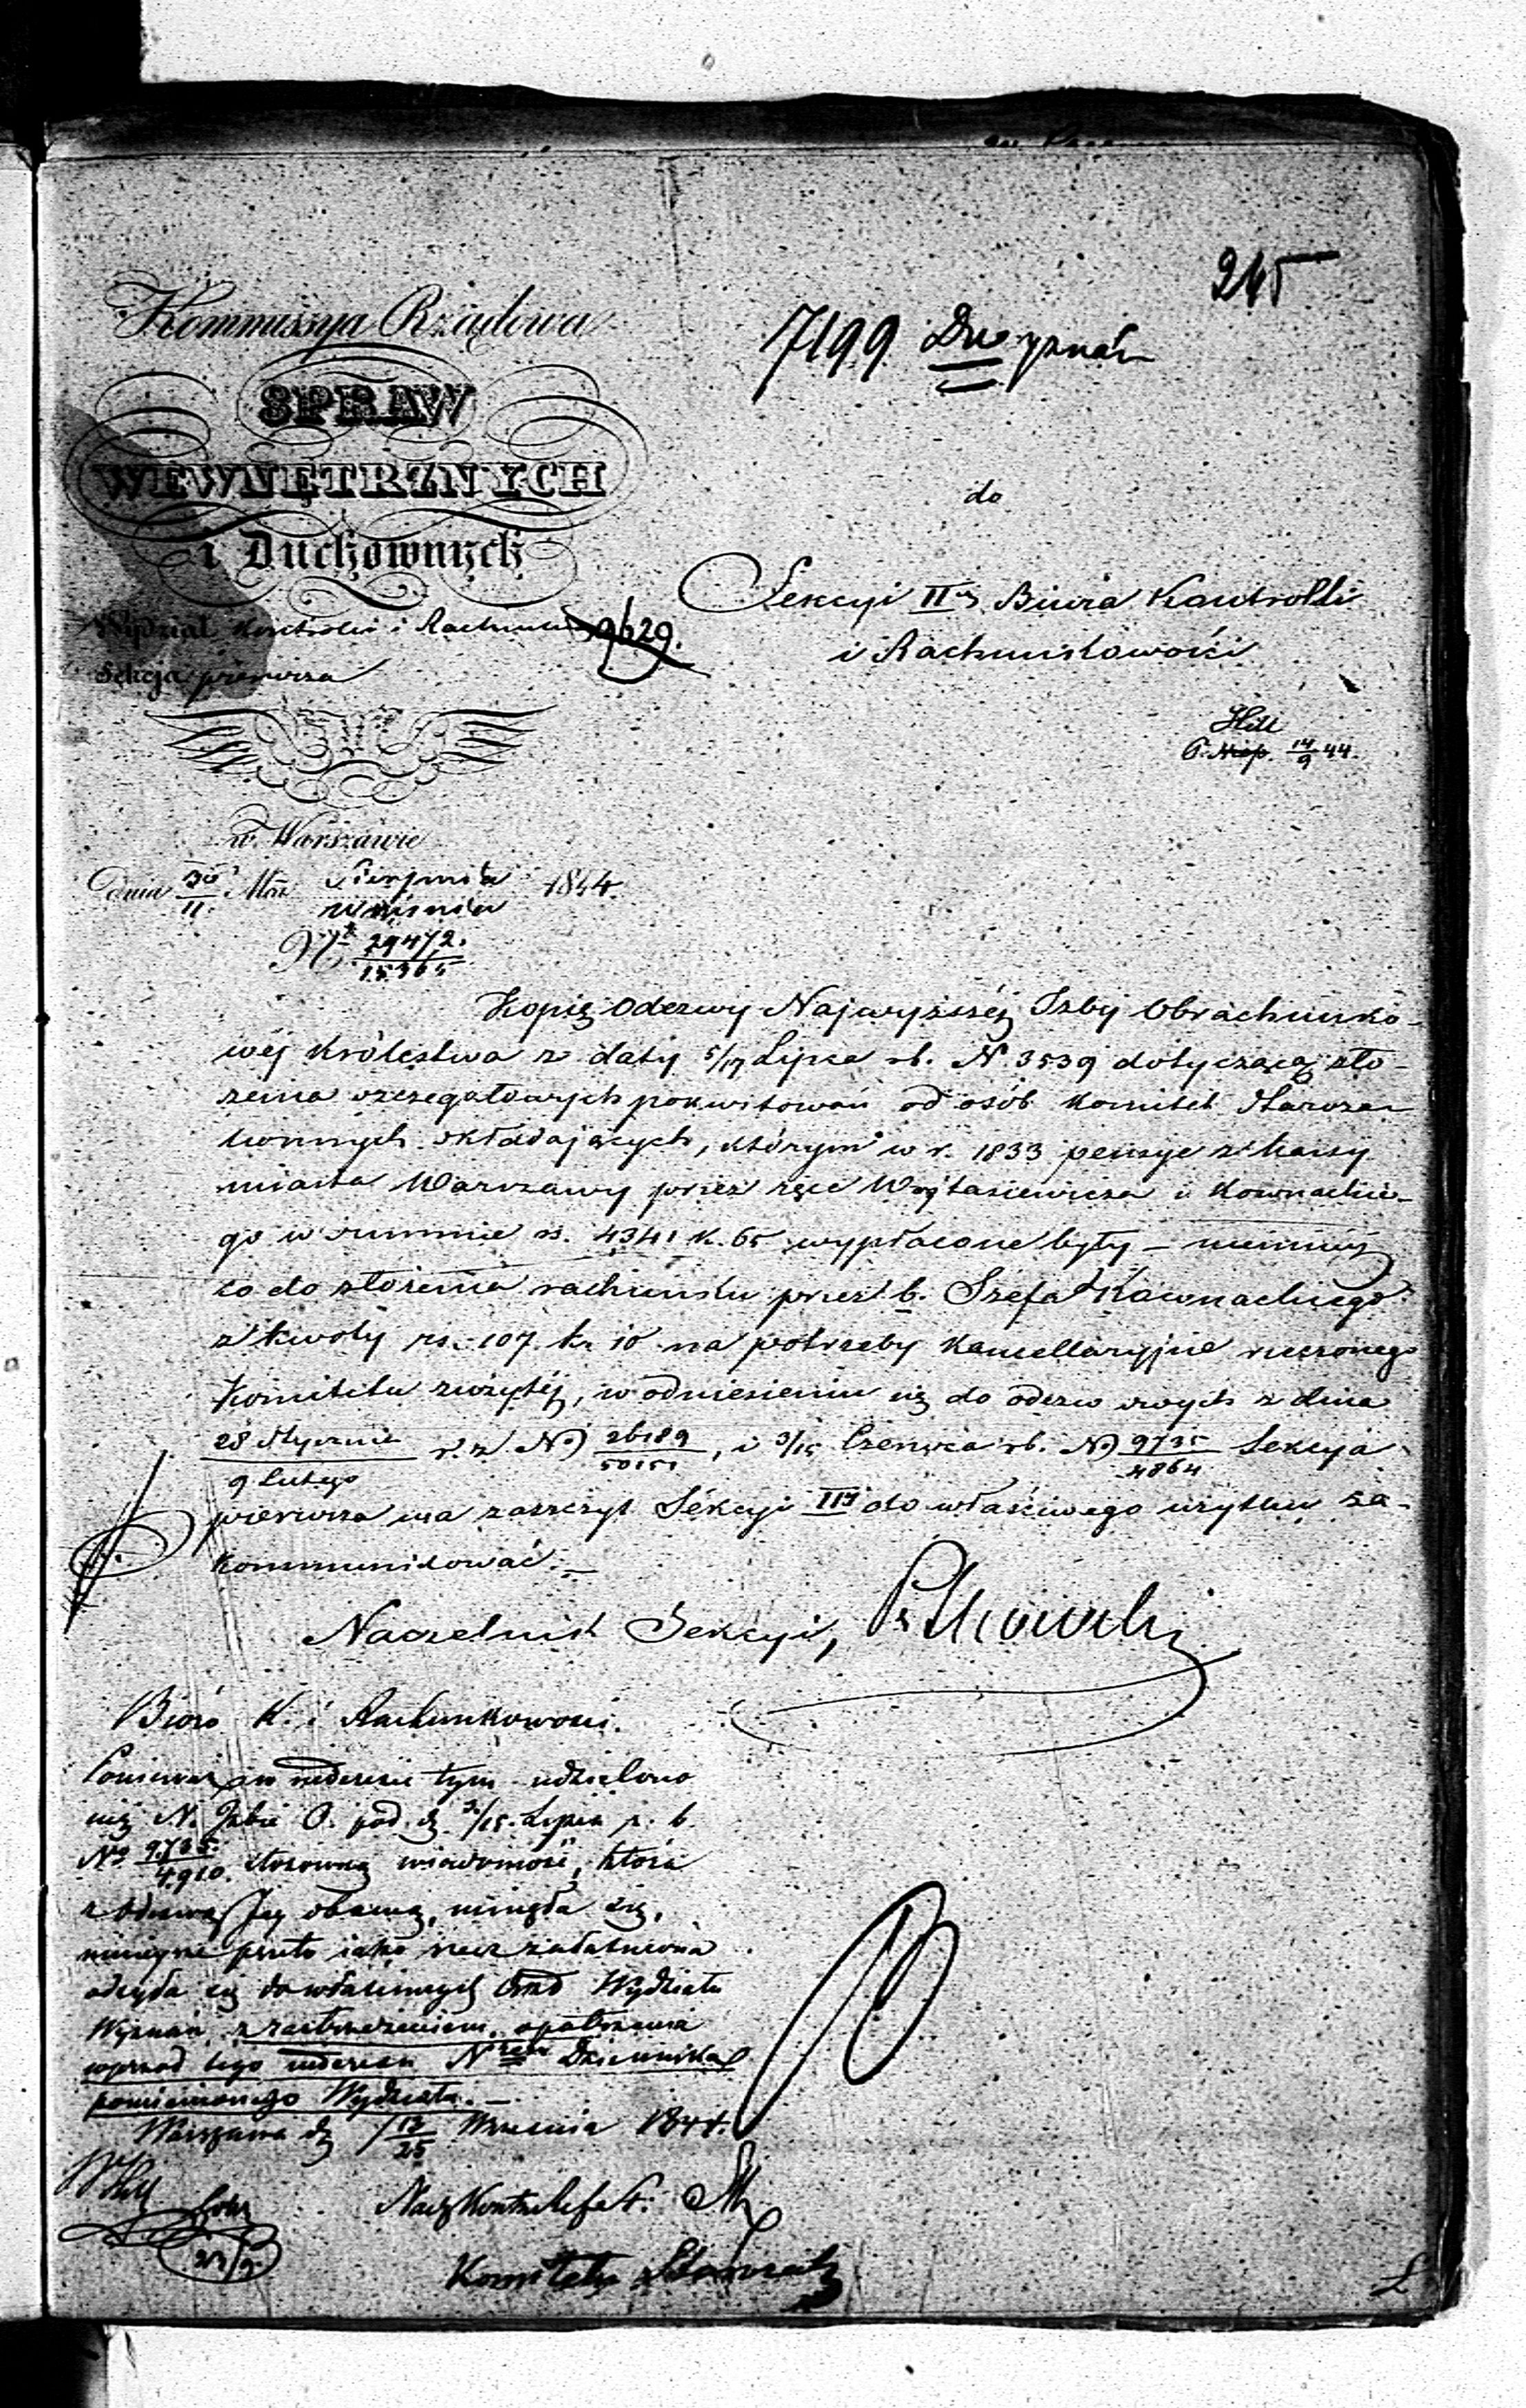 245
7199 Dw wyznań
Kommissya Rządowa
SPRAW
WEWNĘTRZNYCH
i Duchownych
Wydział Kontroli i Rachunk
9629.
Sekcja pierwsza
do
Sekcyi II Biura Kontrolli
i Rachunkowości
Hill
14/9 44.
w Warszawie
Dnia 30/11. Mca Sierpnia / Września 1844.
N 29472. / 15365
Kopię Odezwy Najwyższéj Izby Obrachunko-
wéj Królestwa z daty 5/17 Lipca rb. N. 3539 dotyczącą zło-
żenia szczegółowych pokwitowań od osób Komitet Staroza-
konnych składających, którym w r. 1833 pensye z kassy
miasta Warszawy przez ręce Wojtasiewicza i Kownackie-
go w summie rs. 4341 k. 65 wypłacone były – niemniéj
co do złożenia rachunku przez b. Szefa Kownackiego
z kwoty rs. 107. k. 10 na potrzeby kancellaryjne rzeczonego
Komitetu zużytéj, w odniesieniu się do odezw swych z dnia
28 Stycznia / 9 Lutego r. z. N 26189 / 50151, i 3/15 Czerwca rb. N 9735 / 4864 Sekcya
pierwsza ma zaszczyt Sekcyi III do właściwego użytku za-
kommunikować. –
Naczelnik Sekcyi,
Bióro K. i Rachunkowości.
Ponieważ w interesie tym udzielono
już N. Izbie O. pod d. 3/15 Lipca r. b.
No 9735. / 4910. stosowną wiadomość, która
z Odezwą Jej obecną, minęła się,
niniejsze przeto jako rzecz załatwiona
odsyła się do właściwych Wydziału
Wyznań z zastrzeżeniem opatrzenia
wprzód tego interesu Nrem Dziennika
pomienionego Wydziału. –
Warszawa d. 13/25 Września 1844.
Hill
Nacz Kontroli
Komitetu Starozak